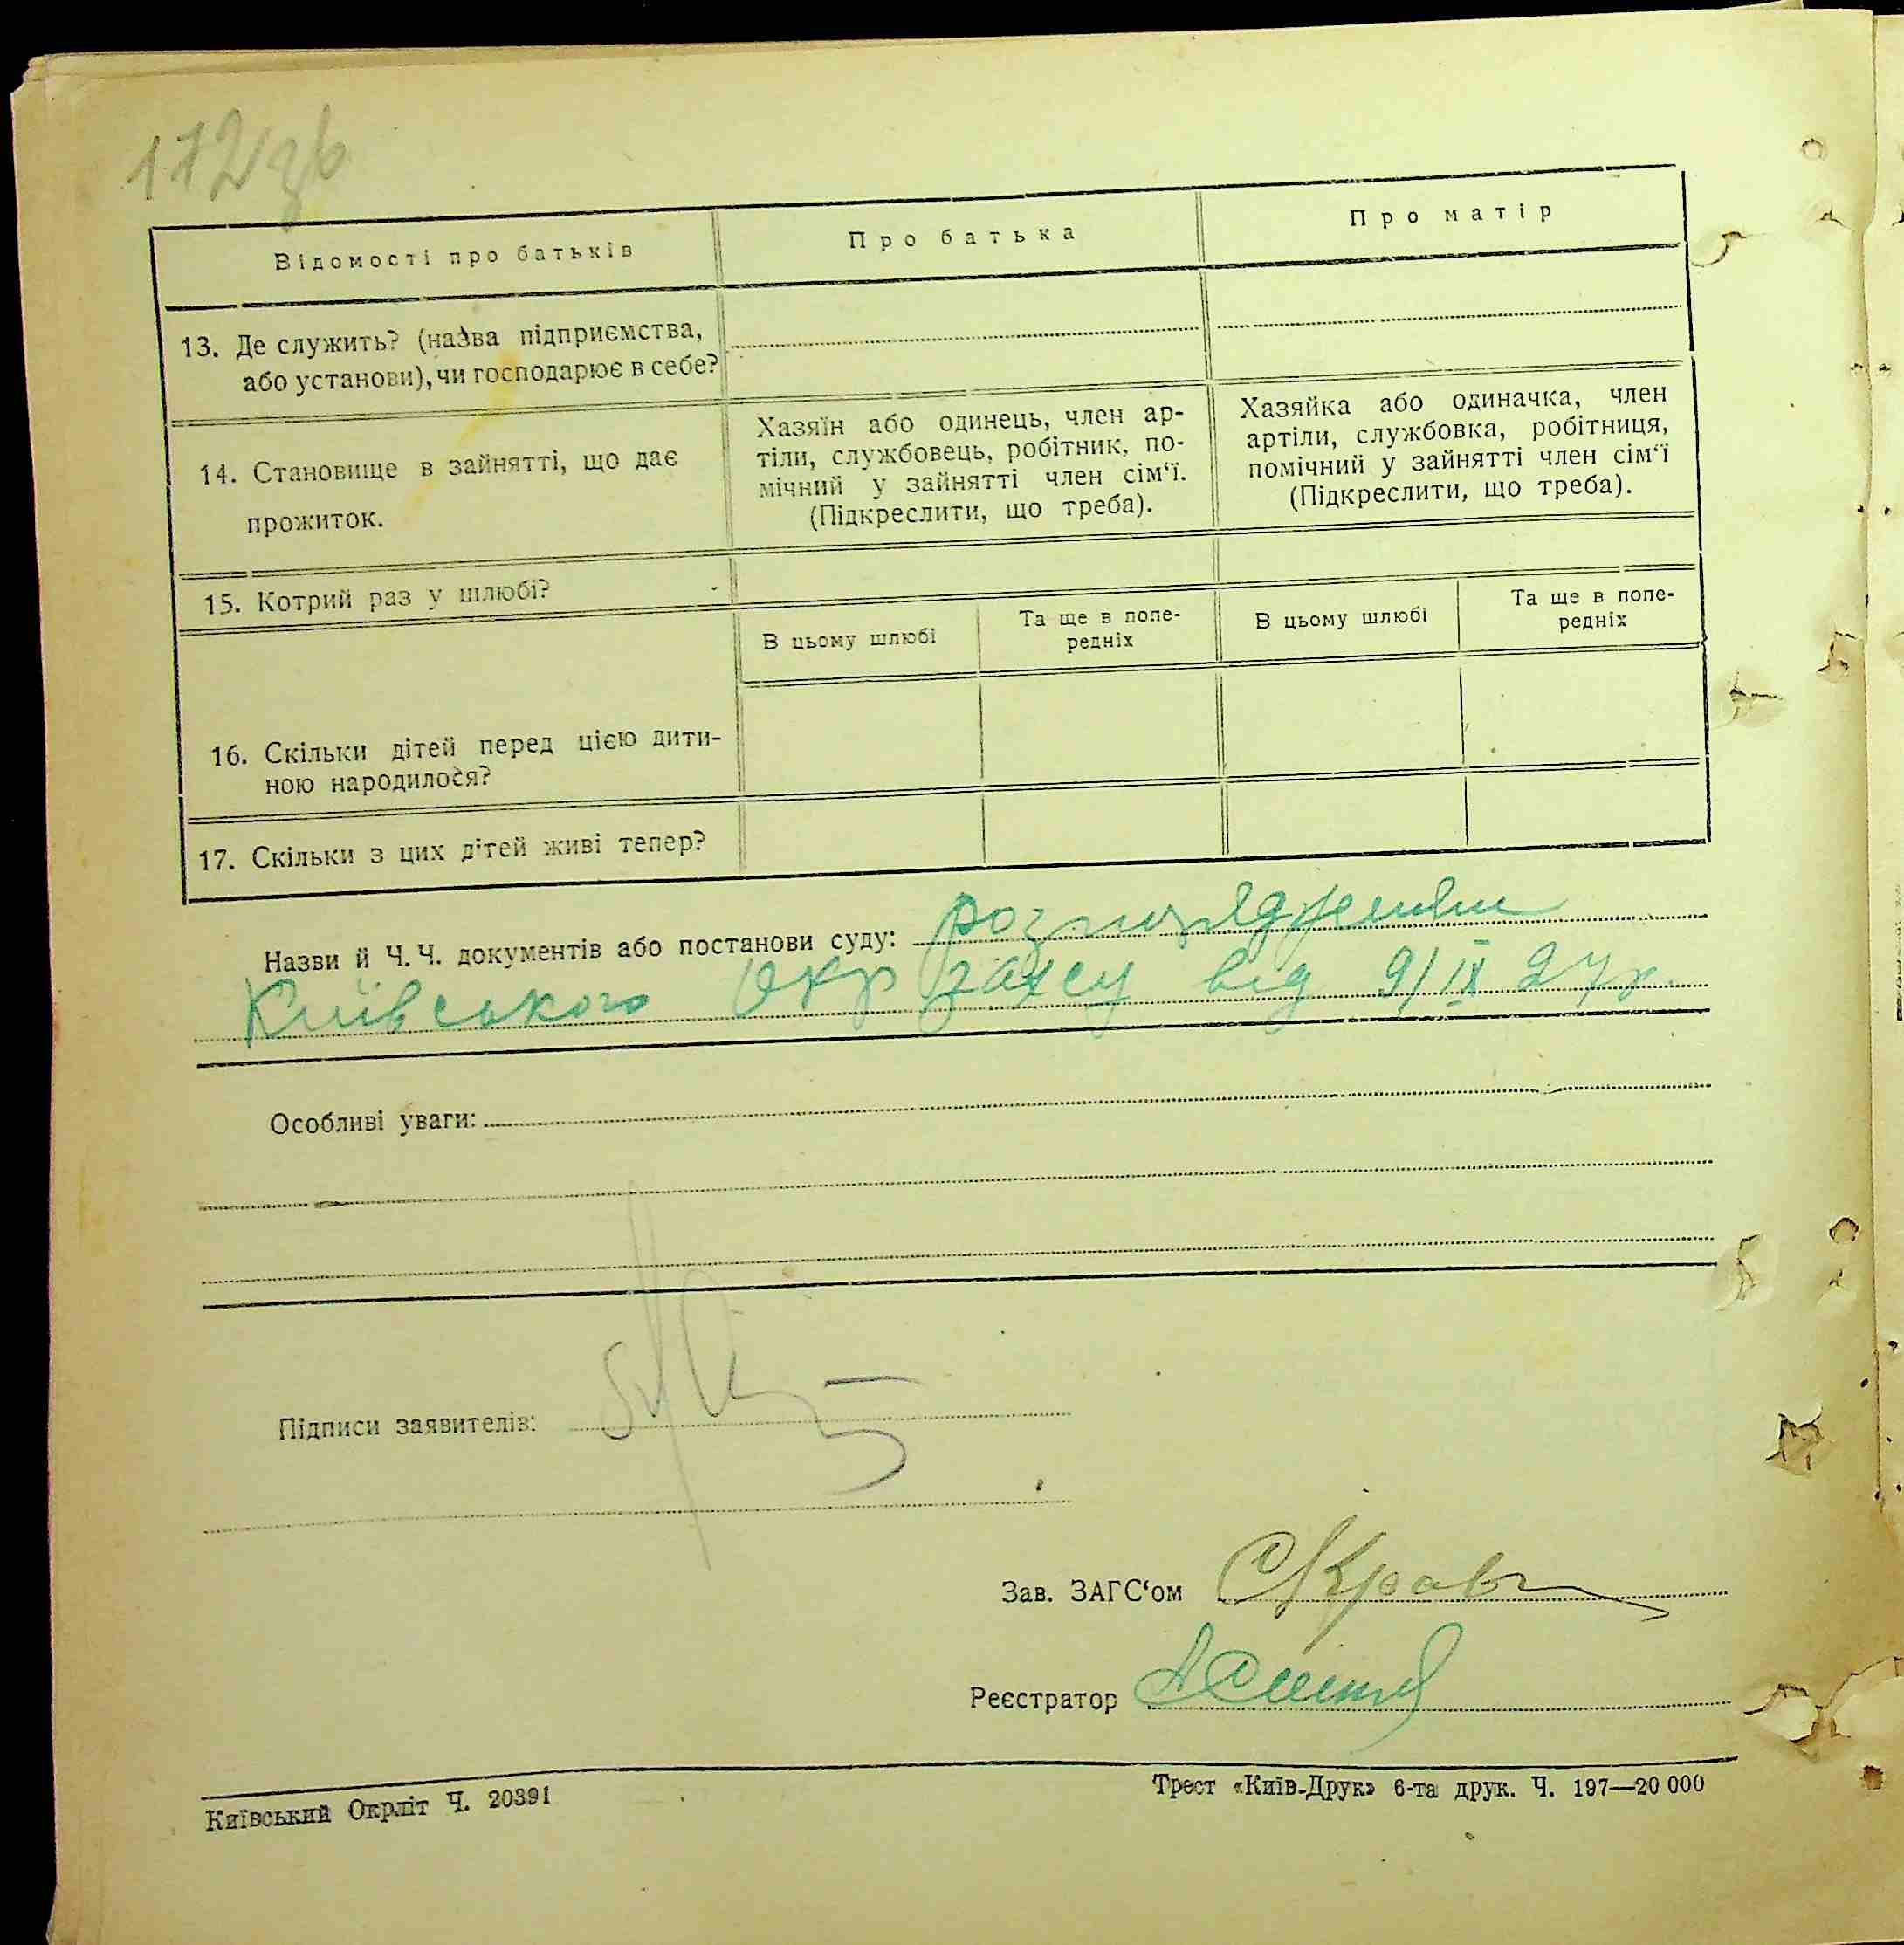 172 зв
Відомості про батьків
Про батька
Про матір
13. Де служить? (назва підприємства,
або установи), чи господарює в себе?
14. Становище в зайнятті, що дає
прожиток.
Хазяїн або одинець, член ар-
тіли, службовець, робітник, по-
мічний у зайнятті член сім‘ї.
(Підкреслити, що треба).
Хазяйка або одиначка, член
артіли, службовка, робітниця,
помічний у зайнятті член сім‘ї
(Підкреслити, що треба).
15. Котрий раз у шлюбі?
В цьому шлюбі
Та ще в попе-
редніх
В цьому шлюбі
Та ще в попе-
редніх
16. Скільки дітей перед цією дити-
ною народилося?
17. Скільки з цих дітей живі тепер?
Назви й Ч. Ч. документів або постанови суду: розпорядження
Київського Окр загсу від 9/IX 27 р.
Особливі уваги:
Підписи заявителів:
Зав. ЗАГС‘ом
Реєстратор
Київський Окрліт Ч. 20391
Трест «Київ-Друк» 6-та друк. Ч. 197—20 000